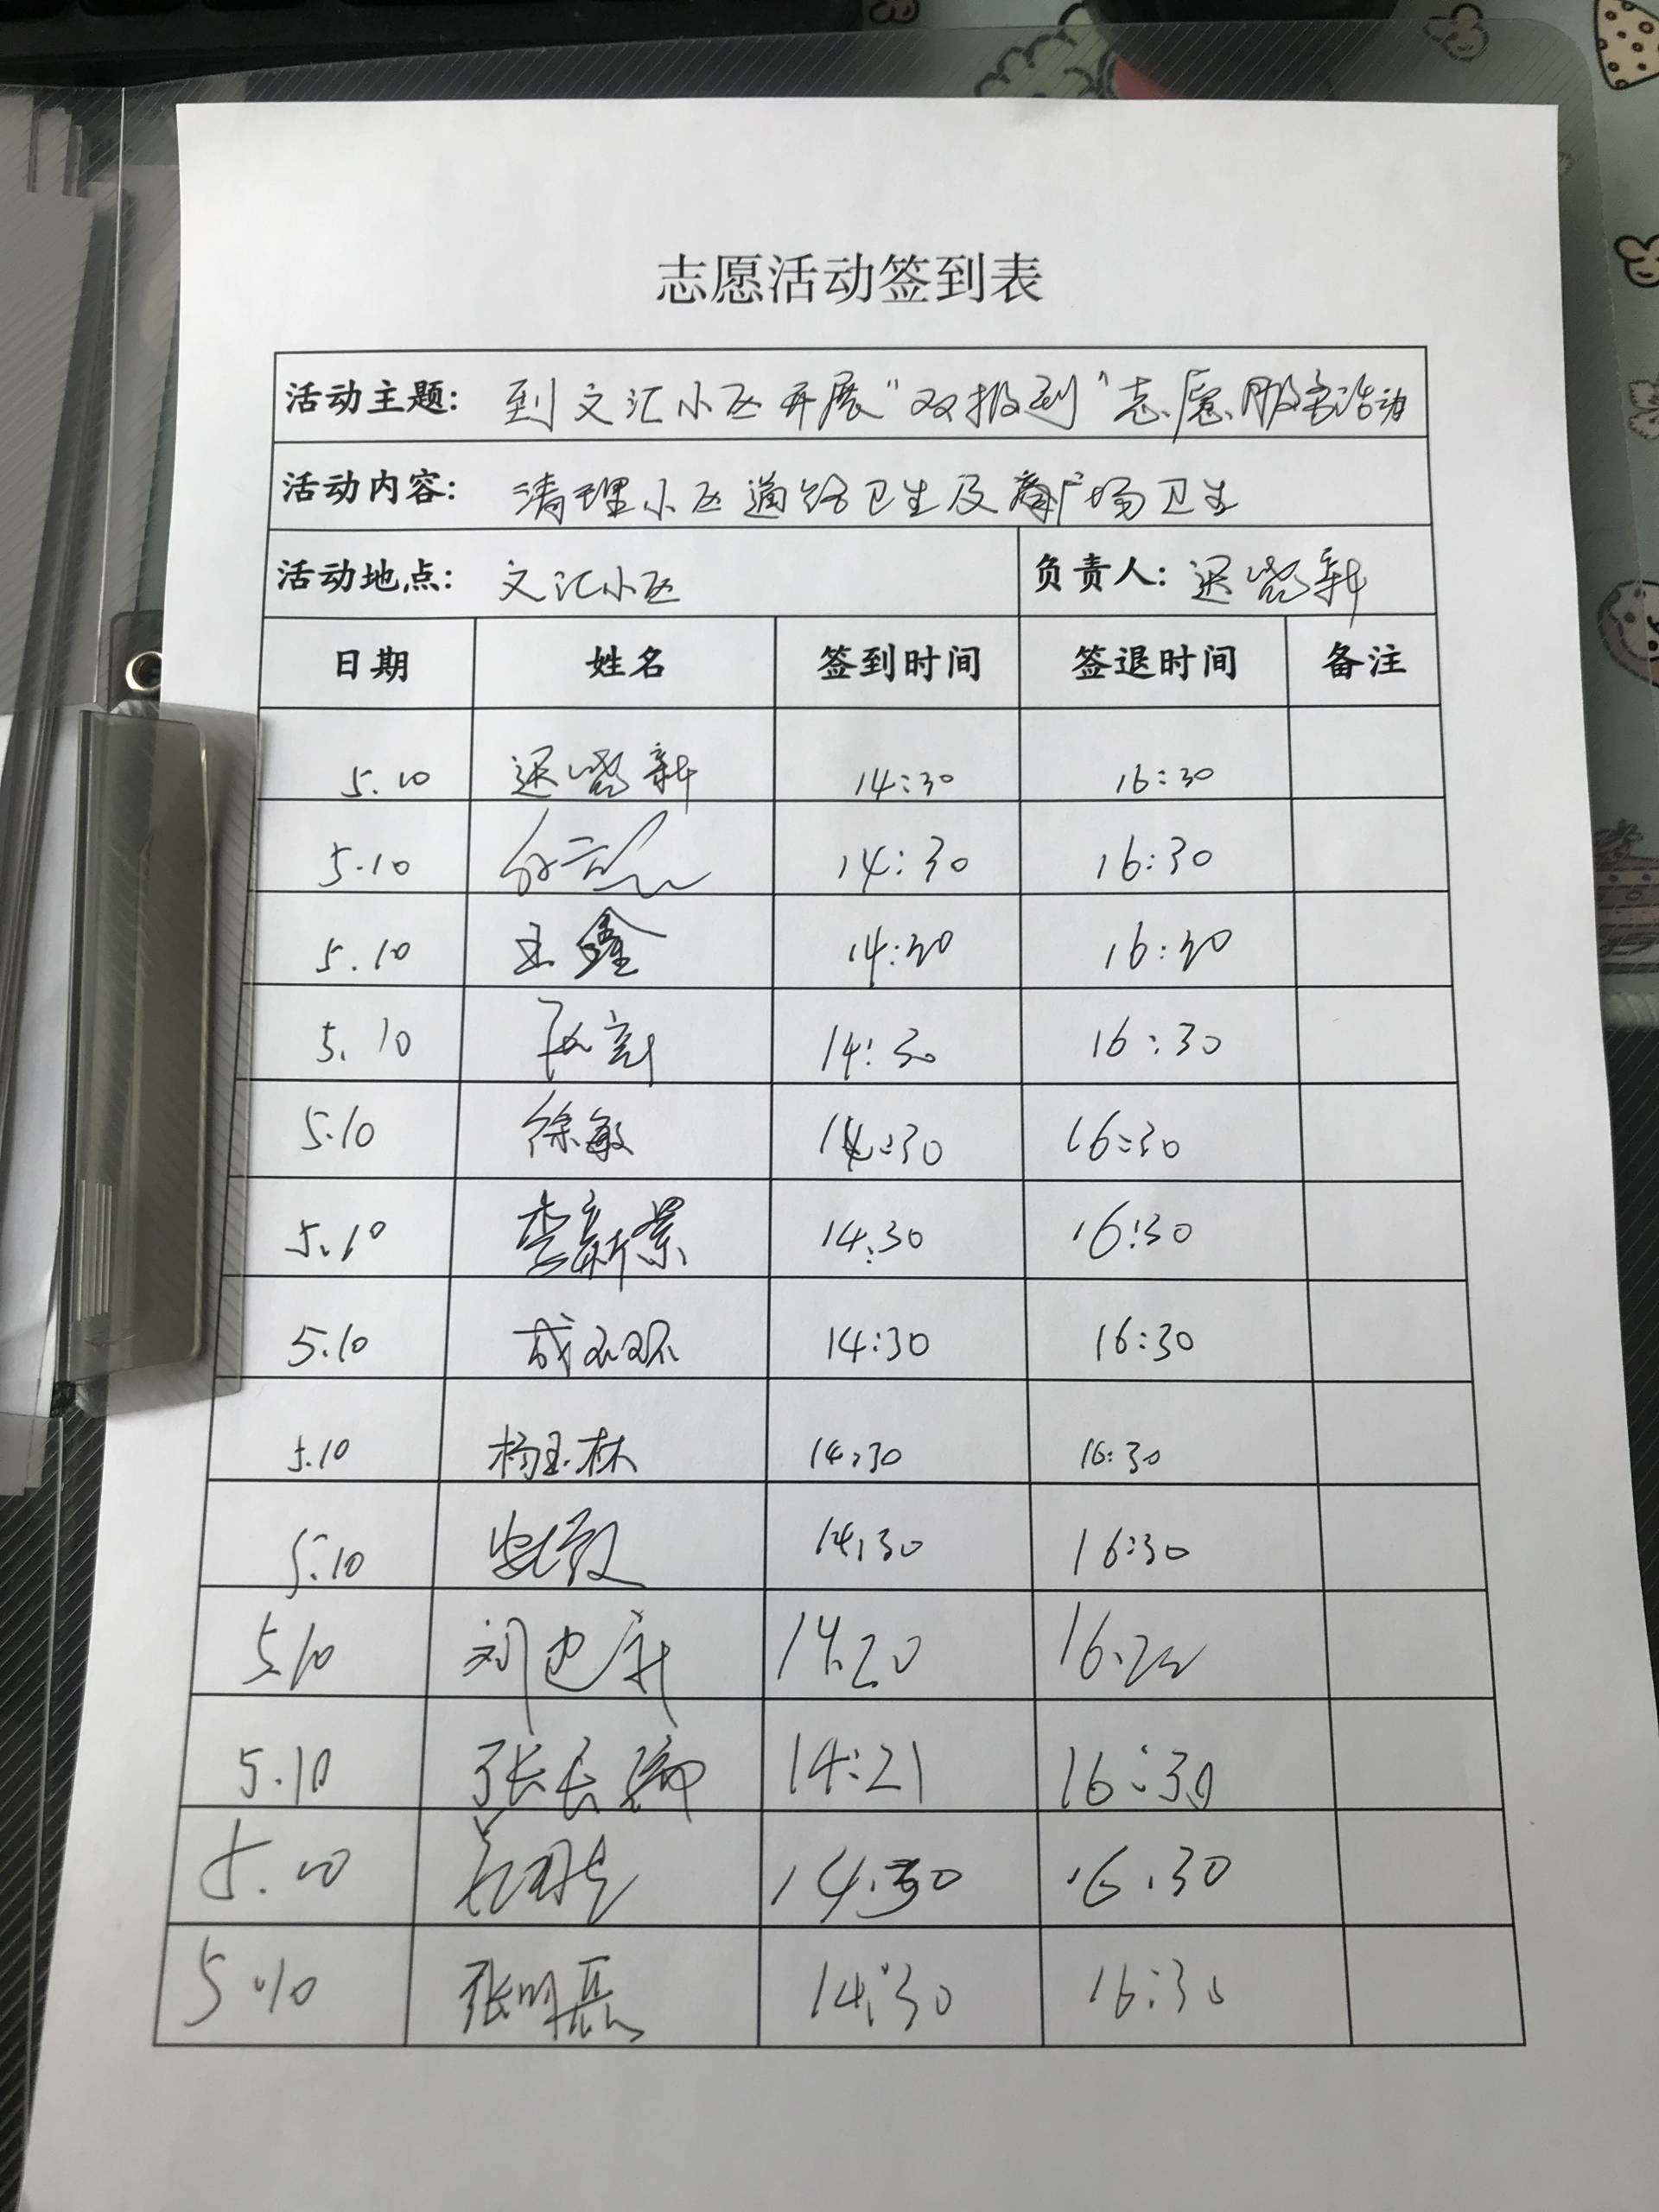 志愿活动签到表
活动主题: 到文汇小区开展"双报到"志愿服务活动
活动内容: 清理小区道路卫生及广场卫生
活动地点: 文汇小区 负责人: 迟 新
日期 姓名 签到时间 签退时间 备注
5.10 迟 新 14:30 16:30
5.10 14:30 16:30
5.10 王鑫 14:30 16:30
5.10 14:30 16:30
5.10 徐敏 14:30 16:30
5.10 李新景 14:30 16:30
5.10 成 14:30 16:30
5.10 杨玉林 14:30 16:30
5.10 14:30 16:30
5.10 刘 14:20 16:20
5.10 张长 14:21 16:30
5.10 14:30 16:30
5.10 张明 14:30 16:30